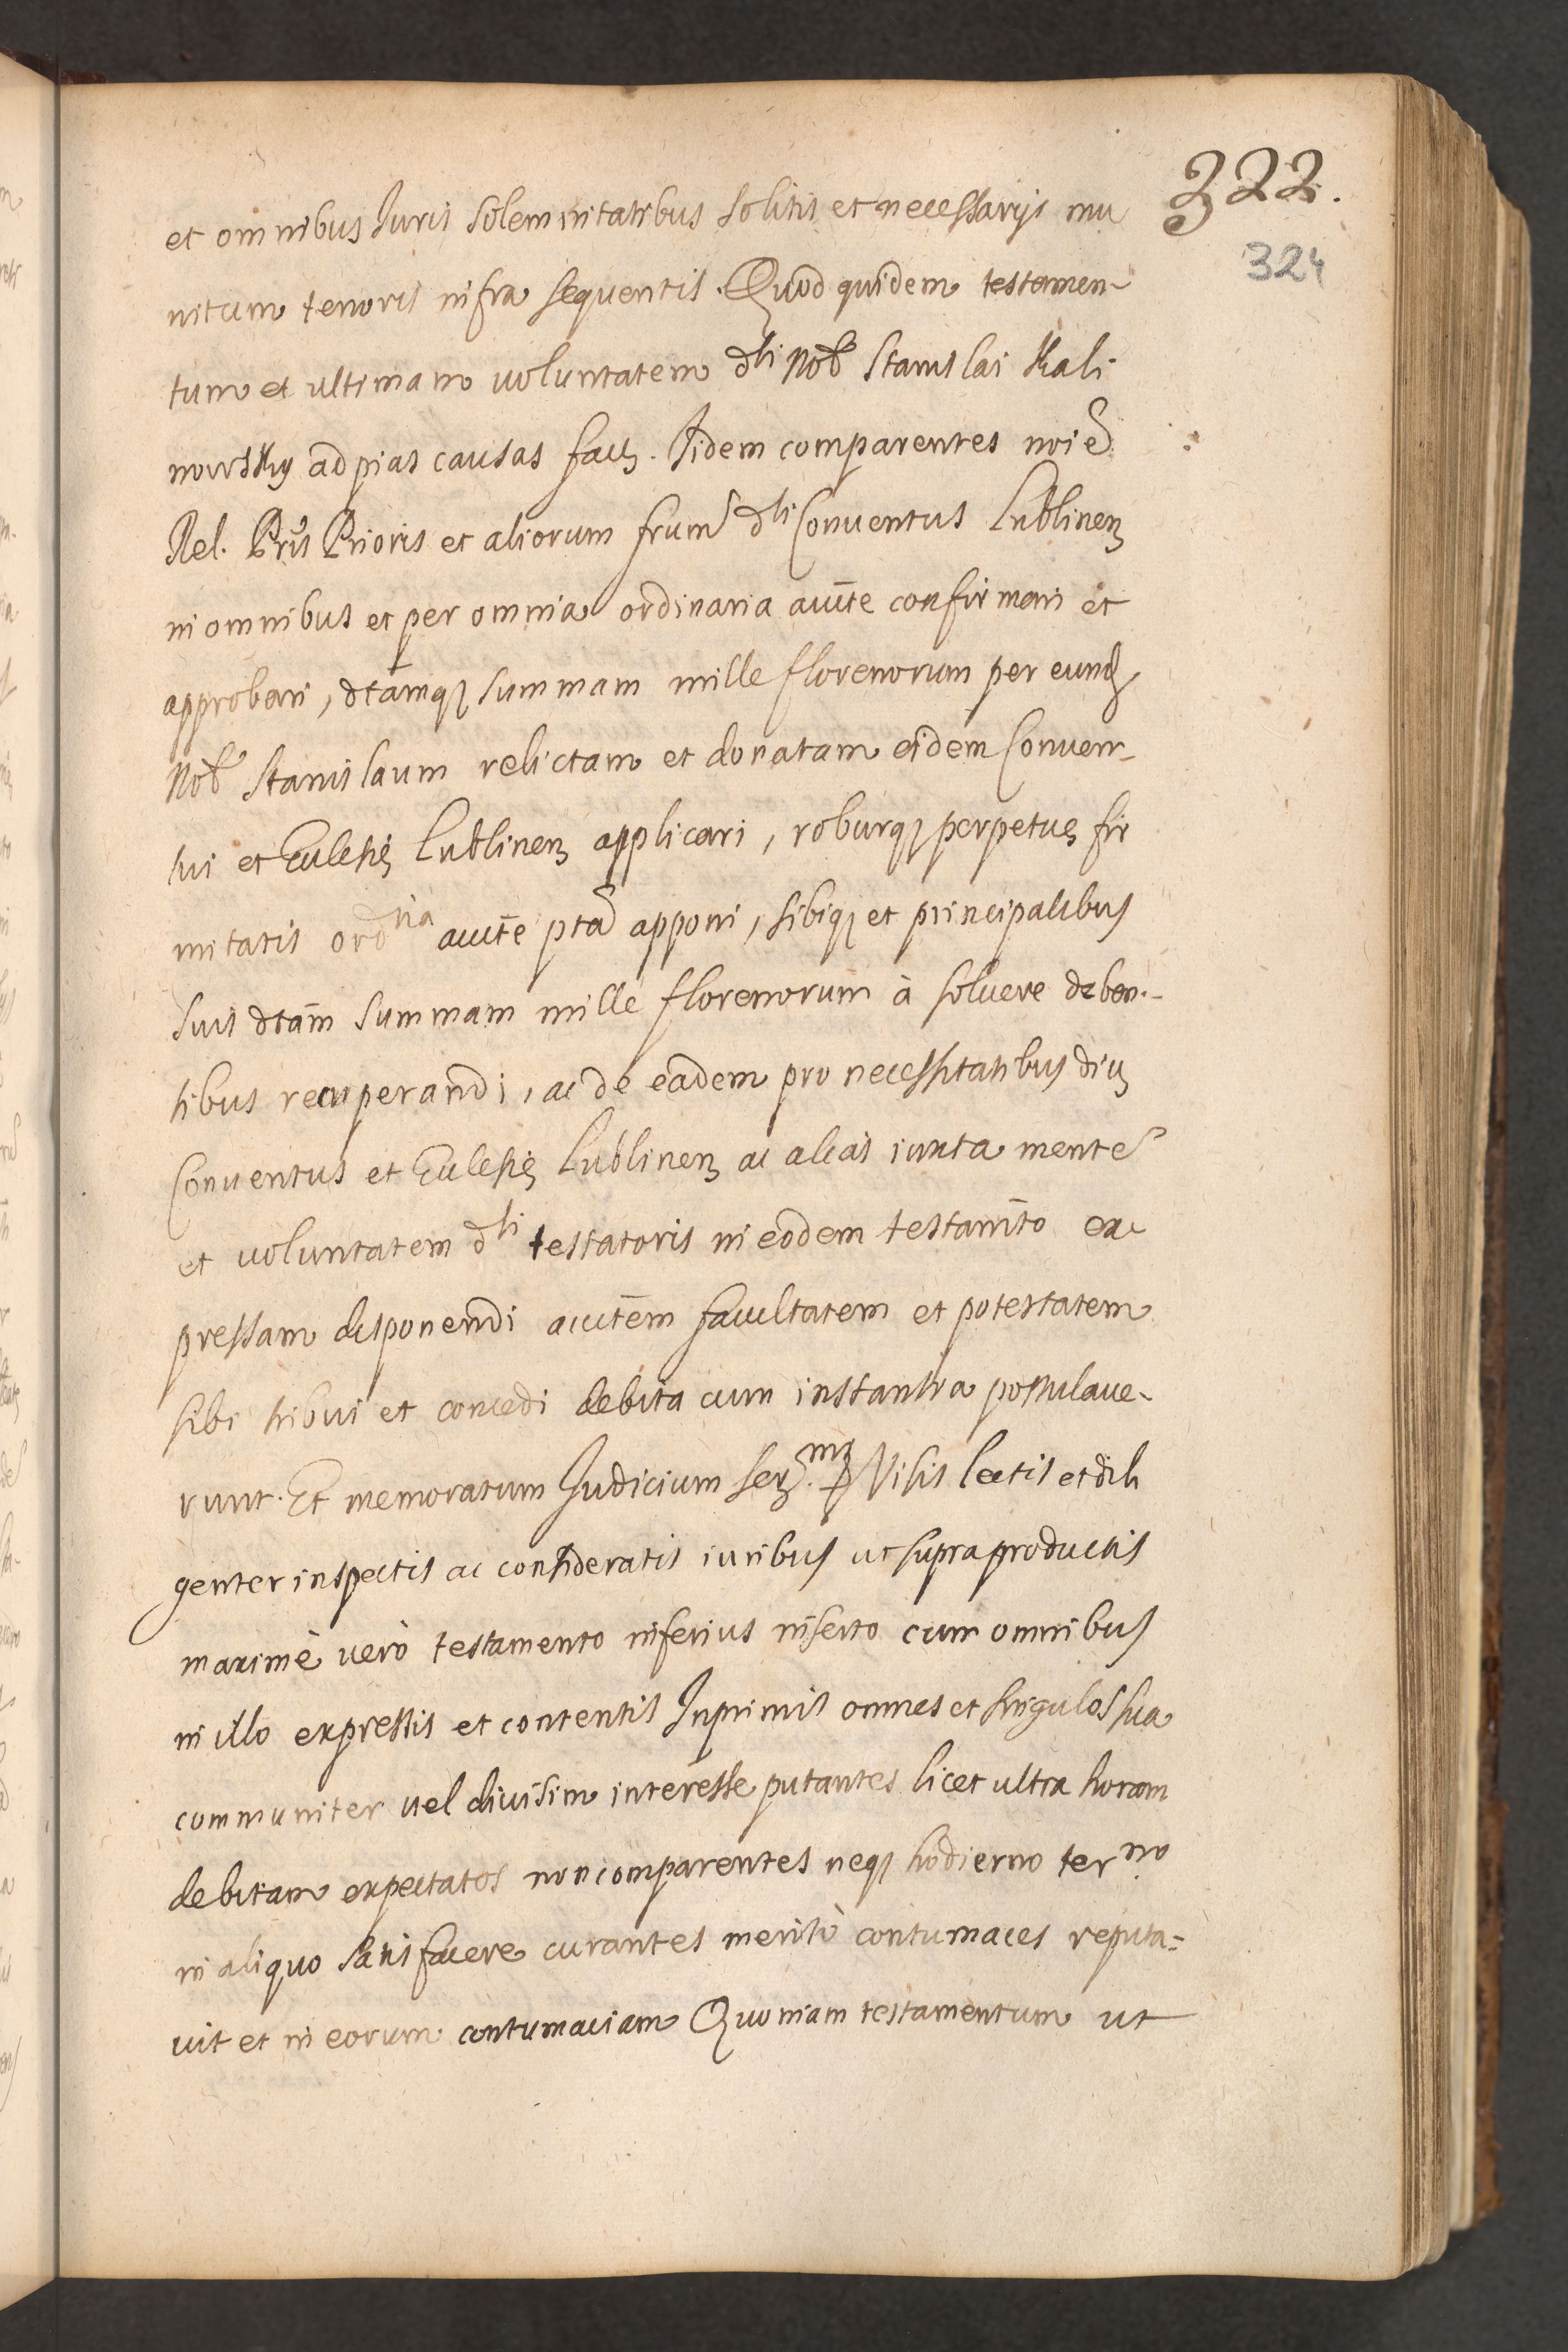 322.
324
et omnibus Iuris solemnitatibus solitis et necessarijs mu
nitum tenoris infra sequentis. Quod quidem testamen-
tum et ultimam uoluntatem dti Nob Stanislai Kali
nowsky ad pias causas fact. Iidem comparentes noie
Rel. Pris Prioris et aliorum frum dti Conuentus Lublinen
in omnibus et per omnia ordinaria aucte confirmari et
approbari, dtamq summam mille florenorum per eund
Nob Stanislaum relictam et donatam eidem Conuen-
tui et Ecclesię Lublinen applicari, roburq perpetuę fir
mitatis ordria aucte pta apponi, sibiq et principalibus
suis dtam summam mille florenorum à soluere deben-
tibus recuperandi, ac de eadem pro necessitatibus dict
Conuentus et Ecclesię Lublinen ac alias iuxta mente
et uoluntatem dti testatoris in eodem testamto ex
pressam disponendi auctem facultatem et potestatem
sibi tribui et concedi debita cum instantia postulaue-
runt. Et memoratum Judicium Visis lectis et dili
genter inspectis ac consideratis iuribus ut supra productis
maximè uerò testamento inferius inserto cum omnibus
in illo expressis et contentis Inprimis omnes et singulos sua
communiter uel diuisim interesse putantes licet ultra horam
debitam expectatos non comparentes neq hodierno terno
in aliquo satisfacere curantes meritò contumaces reputa=
uit et in eorum contumaciam Quoniam testamentum ut